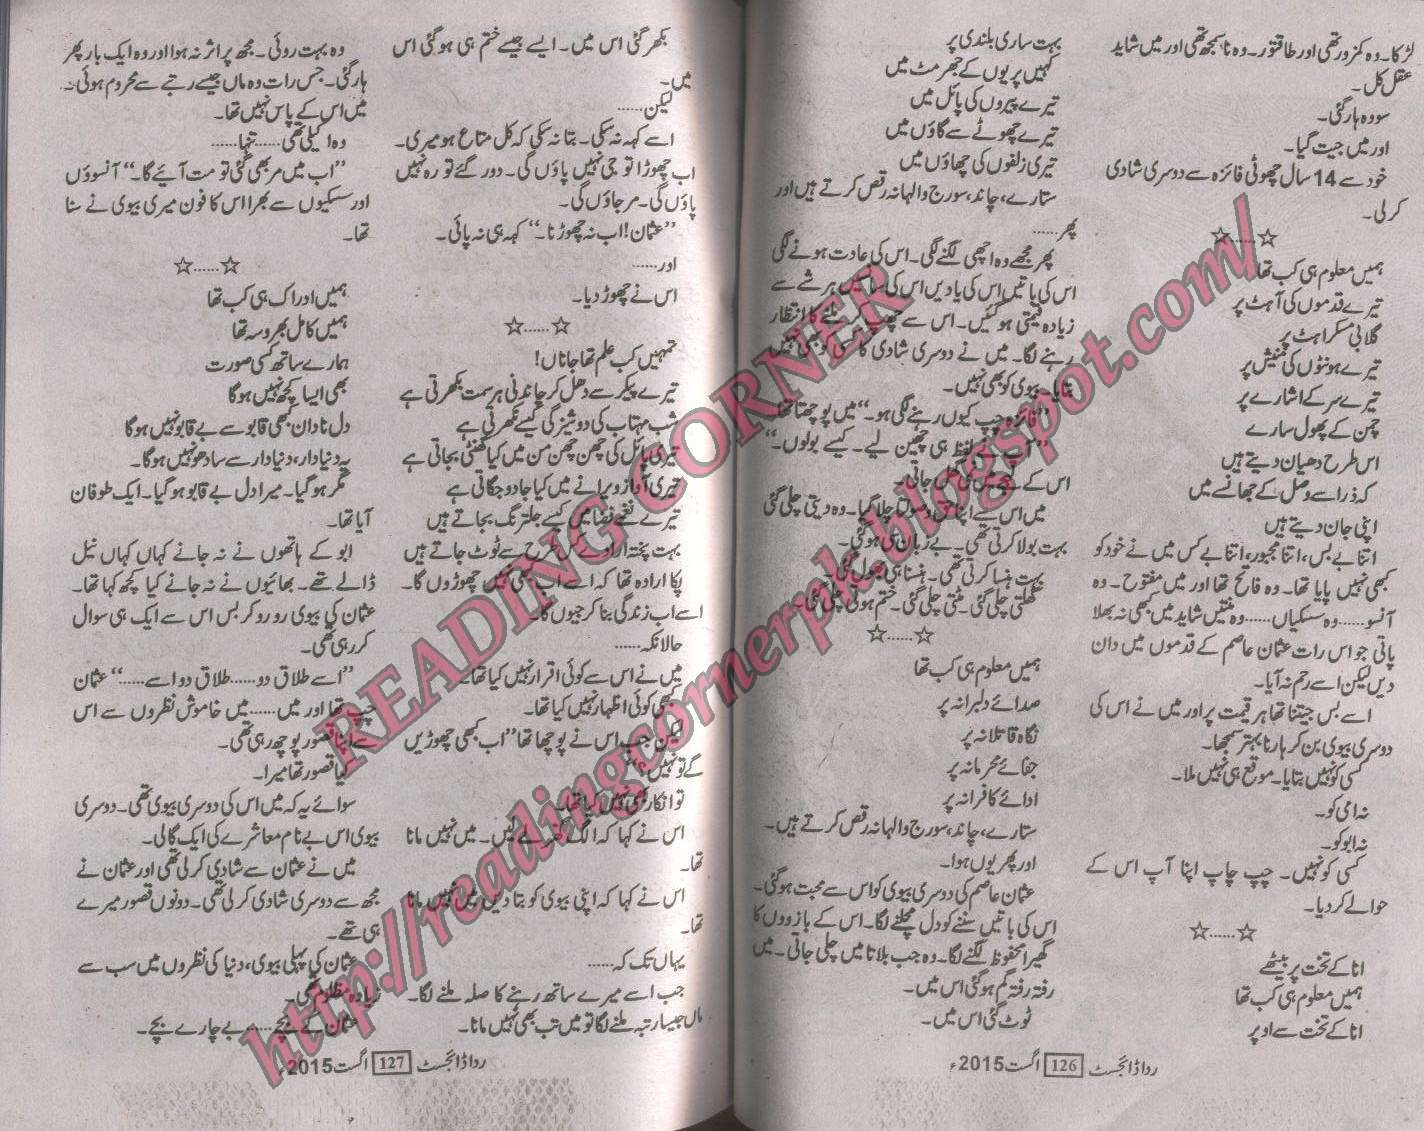 لڑکا۔ وہ کمزور تھی اور طاقتور۔ وہ ناسمجھ تھی اور میں شاید
عقل کل۔
سو وہ ہار گئی۔
اور میں جیت گیا۔
خود سے 14 سال چھوٹی فائزہ سے دوسری شادی
کر لی۔
☆……☆
ہمیں معلوم ہی کب تھا
تیرے قدموں کی آہٹ پر
گلابی مسکراہٹ پر
تیرے ہونٹوں کی جنبش پر
تیرے سر کے اشارے پر
چمن کے پھول سارے
اس طرح دھیان دیتے ہیں
کہ ذرا سے وصل کے جھانسے میں
اپنی جان دیتے ہیں
اتنا بے بس، اتنا مجبور، اتنا بے کس میں نے خود کو
کبھی نہیں پایا تھا۔ وہ فاتح تھا اور میں مفتوح۔ وہ
آنسو…… وہ سسکیاں…… وہ منتیں شاید میں کبھی نہ بھلا
پاتی جو اس رات عثمان عاصم کے قدموں میں دان
دیں لیکن اسے رحم نہ آیا۔
اسے بس جیتنا تھا ہر قیمت پر اور میں نے اس کی
دوسری بیوی بن کر ہارنا بہتر سمجھا۔
کسی کو نہیں بتایا۔ موقع ہی نہیں ملا۔
نہ امی کو۔
نہ ابو کو۔
کسی کو نہیں۔ چپ چاپ اپنا آپ اس کے
حوالے کر دیا۔
☆……☆
انا کے تخت پر بیٹھے
ہمیں معلوم ہی کب تھا
انا کے تخت سے اوپر
بہت ساری بلندی پر
کہیں پریوں کے جھرمٹ میں
تیرے پیروں کی پائل میں
تیرے چھوٹے سے گاؤں میں
تیری زلفوں کی چھاؤں میں
ستارے، چاند، سورج والہانہ رقص کرتے ہیں اور
پھر……
پھر مجھے وہ اچھی لگنے لگی۔ اس کی عادت ہونے لگی
اس کی باتیں اس کی یادیں اس کی سانسیں ہر شے سے
زیادہ قیمتی ہو گئیں۔ اس سے چھپ کر ملنے کا انتظار
رہنے لگا۔ میں نے دوسری شادی کا کسی کو بھی نہیں
بتایا۔ بیوی کو بھی نہیں۔
"فائزہ چپ کیوں رہنے لگی ہو۔" میں پوچھتا تھا۔
لفظ ہی چھین لیے۔ کیسے بولوں۔"
اس کے جاتی۔
میں اس سے اپنا حق وصولتا چلا گیا۔ وہ دیتی چلی گئی
بہت بولا کرتی تھی۔ بے زبان سی ہو گئی۔
بہت ہنسا کرتی تھی۔ ہنسنا ہی بھول گئی
گھلتی چلی گئی۔ مٹتی چلی گئی۔ ختم ہوتی چلی گئی۔
☆……☆
ہمیں معلوم ہی کب تھا
صدائے دلبرانہ پر
نگاہ قاتلانہ پر
جفائے محرمانہ پر
ادائے کافرانہ پر
ستارے، چاند، سورج والہانہ رقص کرتے ہیں۔
اور پھر یوں ہوا۔
عثمان عاصم کی دوسری بیوی کو اس سے محبت ہو گئی۔
اس کی باتیں سننے کو دل مچلنے لگا۔ اس کے بازوؤں کا
گھیرا محفوظ لگنے لگا۔ وہ جب بلاتا میں چلی جاتی۔ میں
رفتہ رفتہ گم ہو گئی اس میں۔
ٹوٹ گئی اس میں۔
ردا ڈائجسٹ 126 اگست 2015ء
بکھر گئی اس میں۔ ایسے جیسے ختم ہی ہو گئی اس
میں۔
لیکن……
اسے کہہ نہ سکی۔ بتا نہ سکی کہ کل متاع ہو میری۔
اب چھوڑا تو جی نہیں پاؤں گی۔ دور گئے تو رہ نہیں
پاؤں گی۔ مر جاؤں گی۔
"عثمان! اب نہ چھوڑنا۔" کہہ ہی نہ پائی۔
اور……
اس نے چھوڑ دیا۔
☆……☆
تمہیں کب علم تھا جاناں!
تیرے پیکر سے دھل کر چاندنی ہر سمت بکھرتی ہے
شب مہتاب کی دوشیزگی کیسے نکھرتی ہے
تیری پائل کی چھن چھن من میں کیا گھنٹی بجاتی ہے
تیری آواز ویرانے میں کیا جادو جگاتی ہے
تیرے نغمے فضا میں کیسے جلترنگ بجاتے ہیں
بہت پختہ ارادے کس طرح سے ٹوٹ جاتے ہیں
پکا ارادہ تھا کہ اسے اب بھی نہیں چھوڑوں گا۔
اسے اب زندگی بنا کر جیوں گا۔
حالانکہ……
میں نے اس سے کوئی اقرار نہیں کیا تھا۔
کبھی کوئی اظہار نہیں کیا تھا۔
لیکن جب اس نے پوچھا تھا "اب کبھی چھوڑیں
گے تو نہیں؟"
تو انکار بھی نہیں کیا تھا۔
اس نے کہا کہ الگ گھر لے لیں۔ میں نہیں مانا
تھا۔
اس نے کہا کہ اپنی بیوی کو بتا دیں میں نہیں مانا
تھا۔
یہاں تک کہ……
جب اسے میرے ساتھ رہنے کا صلہ ملنے لگا۔
ماں جیسا رتبہ ملنے لگا تو میں تب بھی نہیں مانا۔
وہ بہت روئی۔ مجھ پر اثر نہ ہوا اور وہ ایک بار پھر
ہار گئی۔ جس رات وہ ماں جیسے رتبے سے محروم ہوئی۔
میں اس کے پاس نہیں تھا۔
وہ اکیلی تھی…… تنہا……
"اب میں مر بھی گئی تو مت آئیے گا۔" آنسوؤں
اور سسکیوں سے بھرا اس کا فون میری بیوی نے سنا
تھا۔
☆……☆
ہمیں ادراک ہی کب تھا
ہمیں کامل بھروسہ تھا
ہمارے ساتھ کسی صورت
بھی ایسا کچھ نہیں ہوگا
دل نادان کبھی قابو سے بے قابو نہیں ہوگا
یہ دنیا دار، دنیا دار سے سادھو نہیں ہوگا۔
مگر ہو گیا۔ میرا دل بے قابو ہو گیا۔ ایک طوفان
آیا تھا۔
ابو کے ہاتھوں نے نہ جانے کہاں کہاں نیل
ڈالے تھے۔ بھائیوں نے نہ جانے کیا کچھ کہا تھا۔
عثمان کی بیوی رو رو کر بس اس سے ایک ہی سوال
کر رہی تھی۔
"اسے طلاق دو…… طلاق دو اسے……" عثمان
چپ تھا اور میں…… میں خاموش نظروں سے اس
سے اپنا قصور پوچھ رہی تھی۔
کیا قصور تھا میرا۔
سوائے یہ کہ میں اس کی دوسری بیوی تھی۔ دوسری
بیوی اس بے نام معاشرے کی ایک گالی۔
میں نے عثمان سے شادی کر لی تھی اور عثمان نے
مجھ سے دوسری شادی کر لی تھی۔ دونوں قصور میرے
ہی تھے۔
عثمان کی پہلی بیوی، دنیا کی نظروں میں سب سے
زیادہ مظلوم تھی۔
عثمان کے بچے…… بے چارے بچے۔
ردا ڈائجسٹ 127 اگست 2015ء
READING CORNER
http://readingcornerpk.blogspot.com/